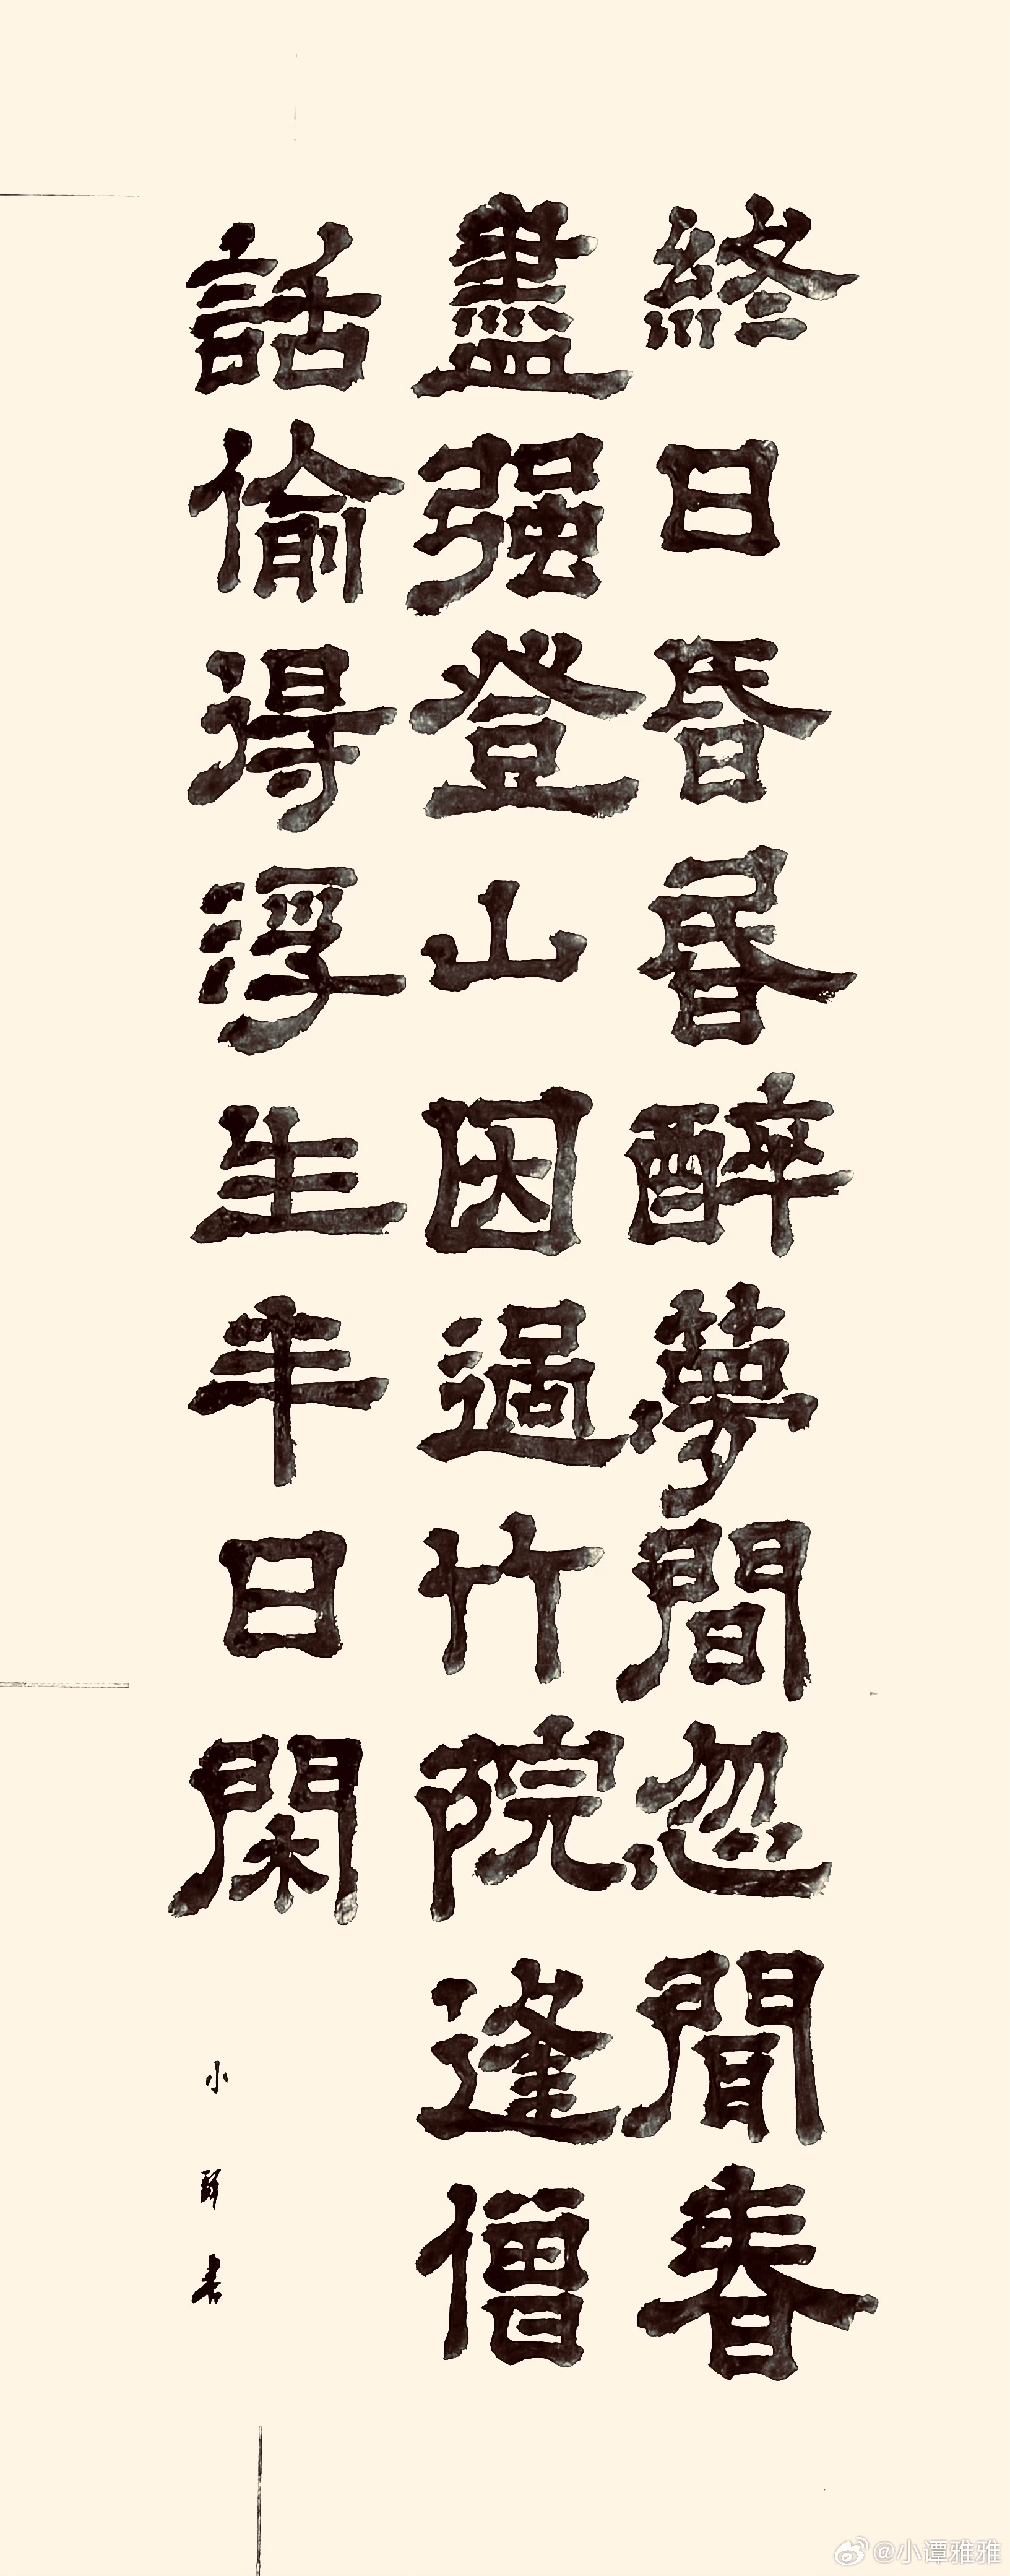 終日昏昏醉夢間忽聞春
盡强登山因過竹院逢僧
話偷得浮生半日閑
小 書
@小谭雅雅